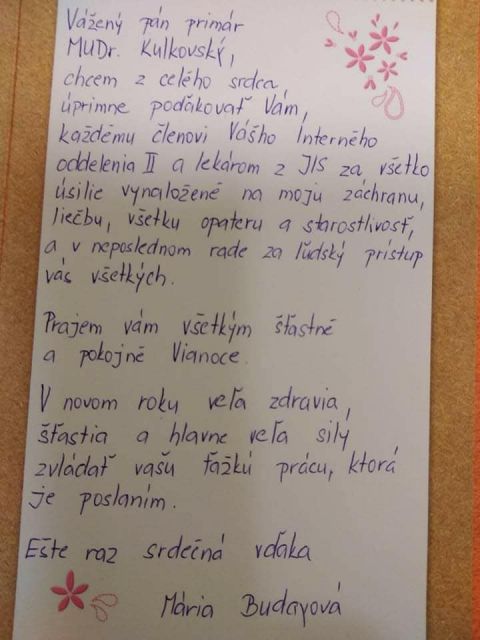 Vážený pán primár
MUDr. Kulkovský,
chcem z celého srdca,
úprimne poďakovať Vám,
každému členovi Vášho Interného
oddelenia II a lekárom z JIS za všetko
úsilie vynaložené na moju záchranu,
liečbu, všetku opateru a starostlivosť,
a v neposlednom rade za ľudský prístup
vás všetkých.
Prajem vám všetkým šťastné
a pokojné Vianoce.
V novom roku veľa zdravia,
šťastia a hlavne veľa síly
zvládať vašu ťažkú prácu, ktorá
je poslaním.
Ešte raz srdečná vďaka
Mária Budayová